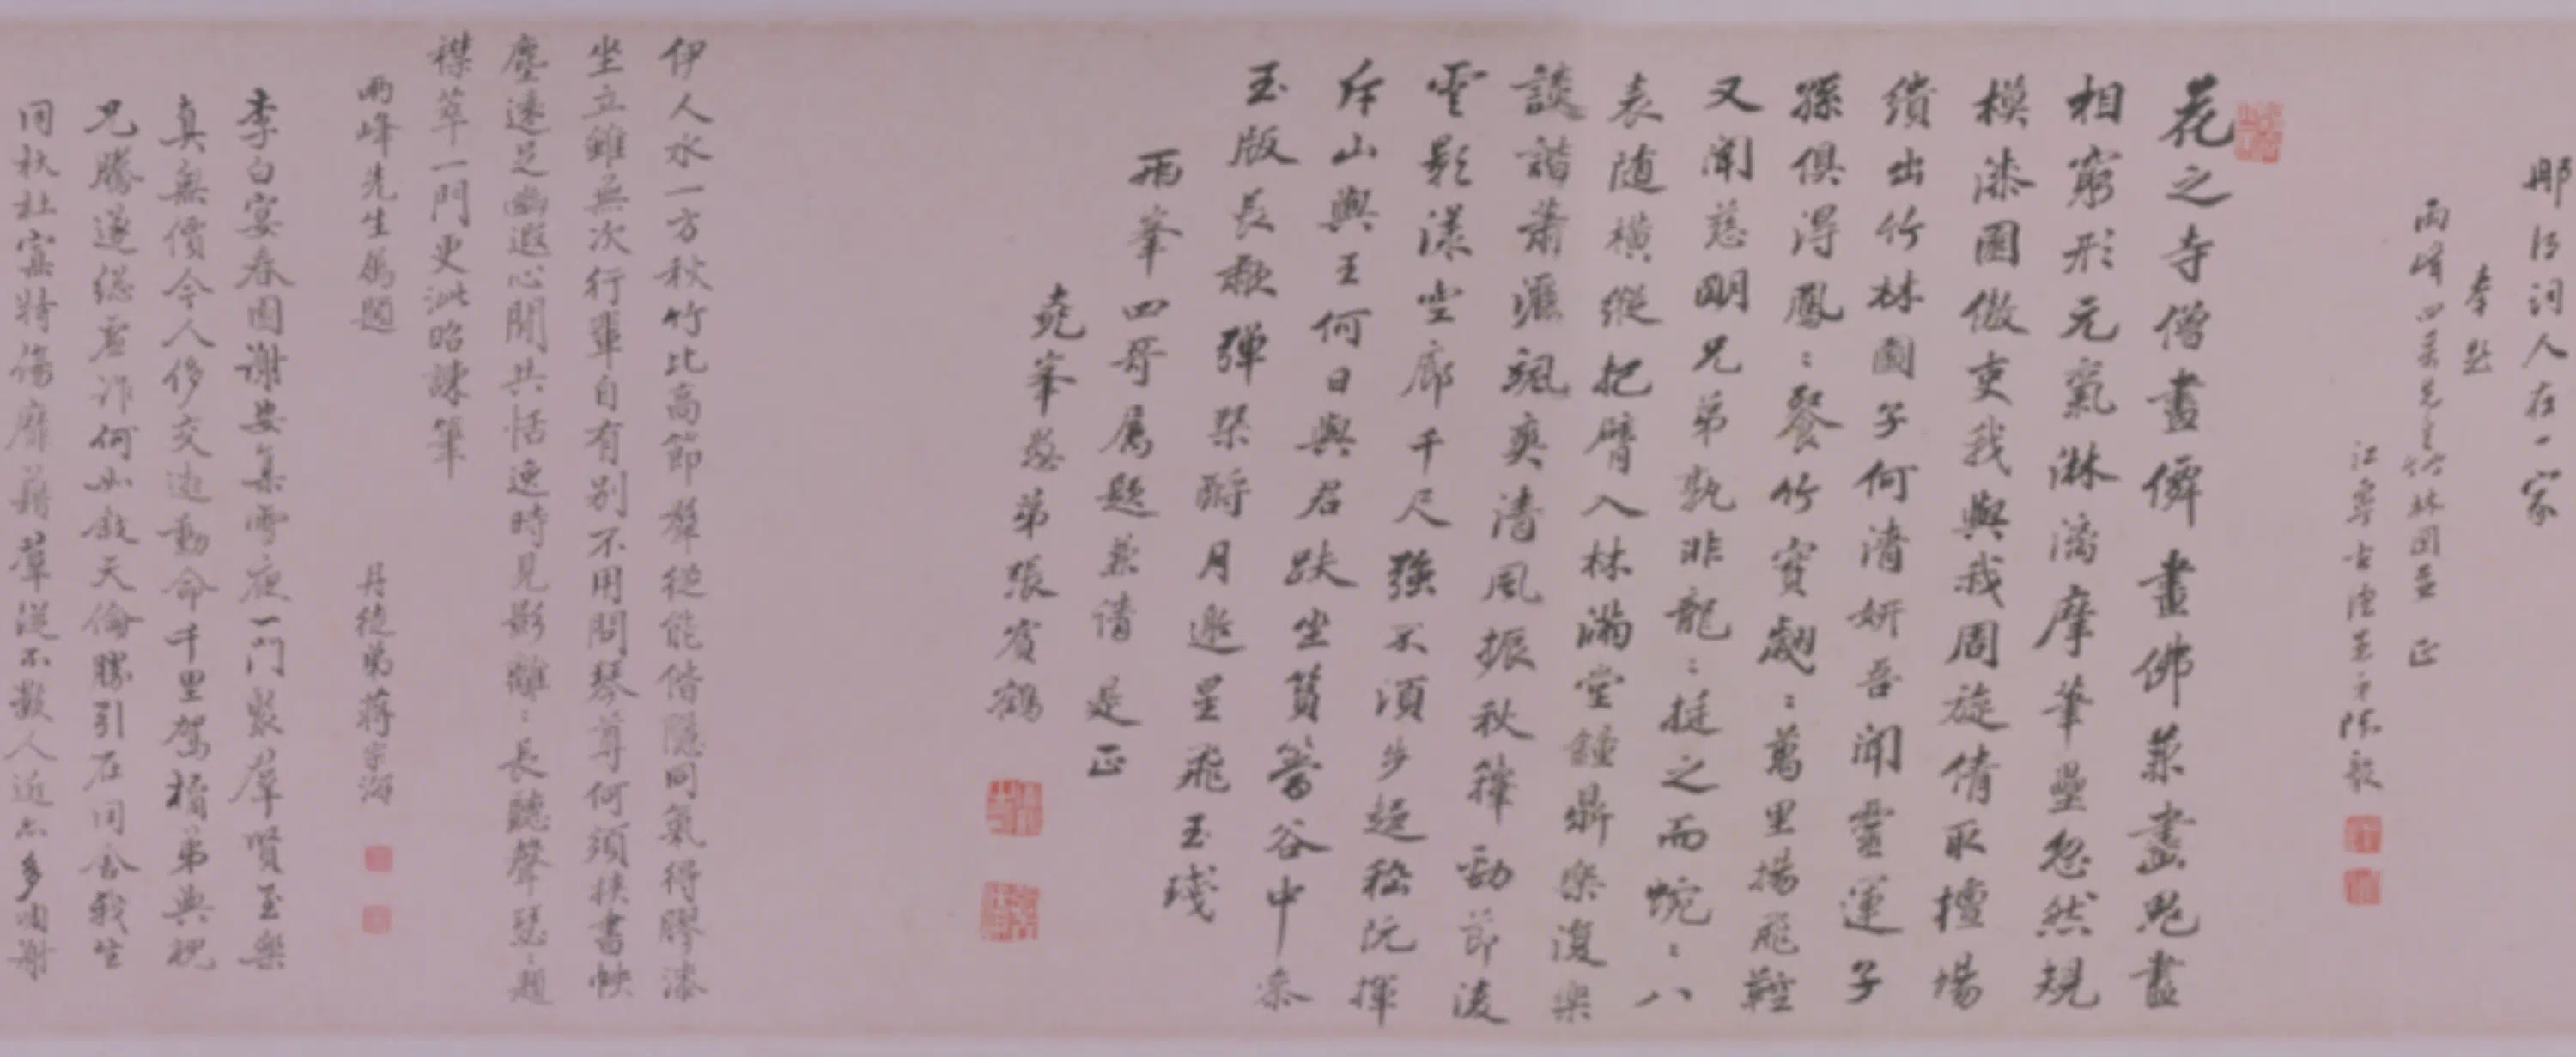 那得詞人在一家
奉題
兩峰四兄先生竹林圖並正
江寧古漁弟陳毅
花之寺僧畫僊畫佛兼畫鬼畫
相窮形元氣淋漓摩筆壘忽然規
模漆園傲吏我與我周旋倩取擅場
繢出竹林圖子何清妍吾聞靈運子
孫俱得鳳:餐竹實翽:萬里揚飛鞚
又聞慈明兄弟孰非龍:挺之而蜿:八
表随橫縱把臂入林滿堂鐘鼎樂復樂
談諧蕭灑颯爽清風振秋籜勁節淩
雲影漾空廊千尺強不須步趨嵇阮揮
斥山與王何日與君趺坐篔簹谷中叅
玉版長歌彈琹酹月邀星飛玉琖
兩峯四哥屬題兼請是正
堯峯愚弟張賓鶴
伊人水一方秋竹比高節羣從能偕隱同氣得膠漆
坐立雖無次行輩自有别不用問琴尊何須挾書帙
塵遠足幽遐心閒共恬逸時見影離:長聽聲瑟:題
襟萃一門更泚昭諫筆
兩峰先生屬題
丹徒弟蔣宗海
李白宴春園謝安集雪夜一門聚羣賢至樂
真無價今人侈交遊動命千里駕橘弟與棖
兄勝邈總虛詐何如敘天倫勝引在同舍我生
同杕杜寡特傷靡藉羣從不數人近亦多凋謝